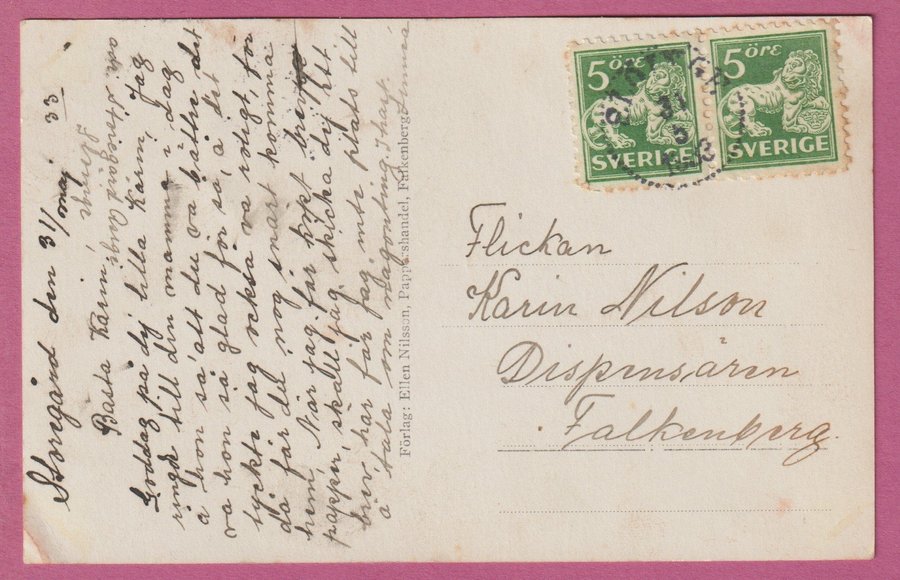 Storegård den 31/maj 33
Basta Karin,
Goddag på dig lilla Karin, Jag
ringde till din mamma i dag
å hon sa att du va bättre det
va hon så glad för sa, å det
tyckte jag också va roligt, för
då får du nog snart komma
hem, När jag får köpt brev
papper, skall jag skicka dig ett
brev, här får jag inte plats till
å tala om någonting, Ihåg
Förlag: Ellen Nilsson, Pappershandel, Falkenberg.
5 ÖRE
SVERIGE
5 ÖRE
SVERIGE
31
5
Flickan
Karin Nilson
Dispensären
Falkenberg